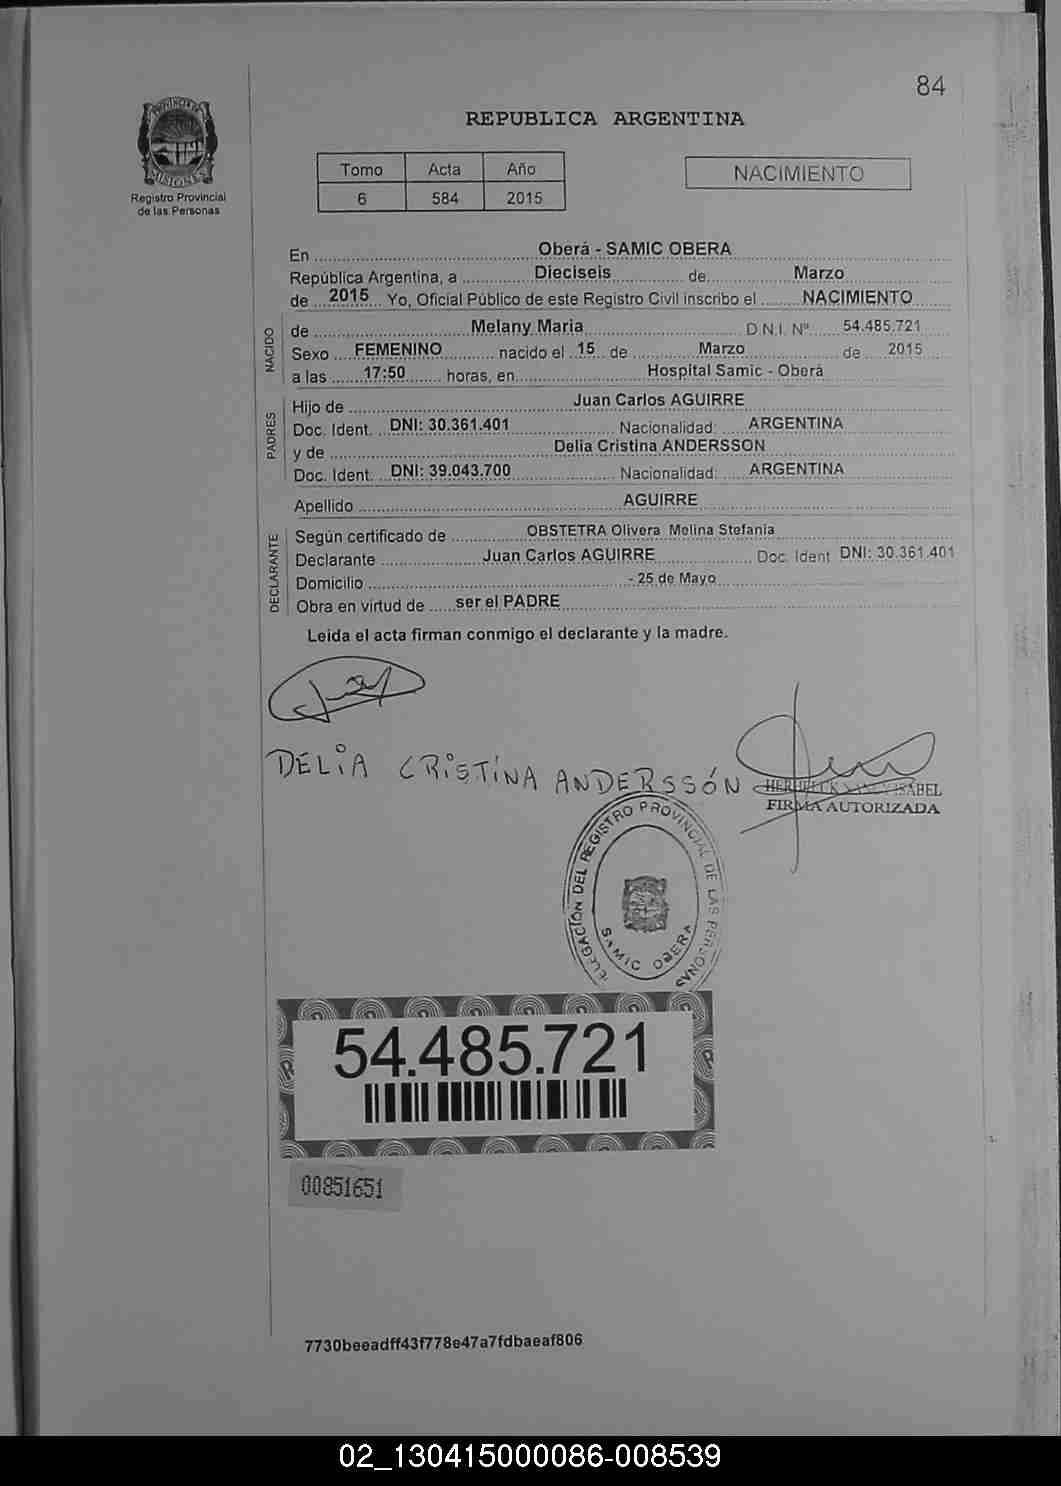 84
PROVINCIA DE
MISIONES
Registro Provincial
de las Personas
REPUBLICA ARGENTINA
Tomo Acta Año
6 584 2015
NACIMIENTO
En Oberá - SAMIC OBERA
República Argentina, a Dieciseis de Marzo
de 2015 Yo, Oficial Público de este Registro Civil inscribo el NACIMIENTO
NACIDO
de Melany Maria D.N.I. Nº 54.485.721
Sexo FEMENINO nacido el 15 de Marzo de 2015
a las 17:50 horas, en Hospital Samic - Oberá
PADRES
Hijo de Juan Carlos AGUIRRE
Doc. Ident. DNI: 30.361.401 Nacionalidad: ARGENTINA
y de Delia Cristina ANDERSSON
Doc. Ident. DNI: 39.043.700 Nacionalidad: ARGENTINA
Apellido AGUIRRE
DECLARANTE
Según certificado de OBSTETRA Olivera Melina Stefania
Declarante Juan Carlos AGUIRRE Doc. Ident DNI: 30.361.401
Domicilio - 25 de Mayo
Obra en virtud de ser el PADRE
Leida el acta firman conmigo el declarante y la madre.
DELiA CRiSTíNA ANDERSSÓN
ISABEL
FIRMA AUTORIZADA
DELEGACIÓN DEL REGISTRO PROVINCIAL DE LAS PERSONAS
SAMIC OBERA
54.485.721
00851651
7730beeadff43f778e47a7fdbaeaf806
02_130415000086-008539